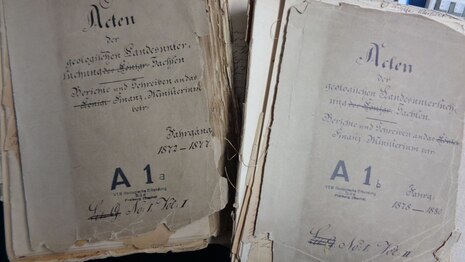 Acten
der
geologischen Landesunter-
suchung des Königr. Sachsen
Berichte und Schreiben an das
Finanz-Ministerium
betr.
Jahrgang
1872-1877
A 1a
VEB Geologische Erkundung
Süd
No. 1 Vol. I
Acten
der
geologischen Landesuntersuch-
ung des Königr. Sachsen.
Berichte und Schreiben an das
Finanz-Ministerium betr.
A 1b
VEB Geologische Erkundung
Süd
Jahrg.
1878-1880
No. 1 Vol. II